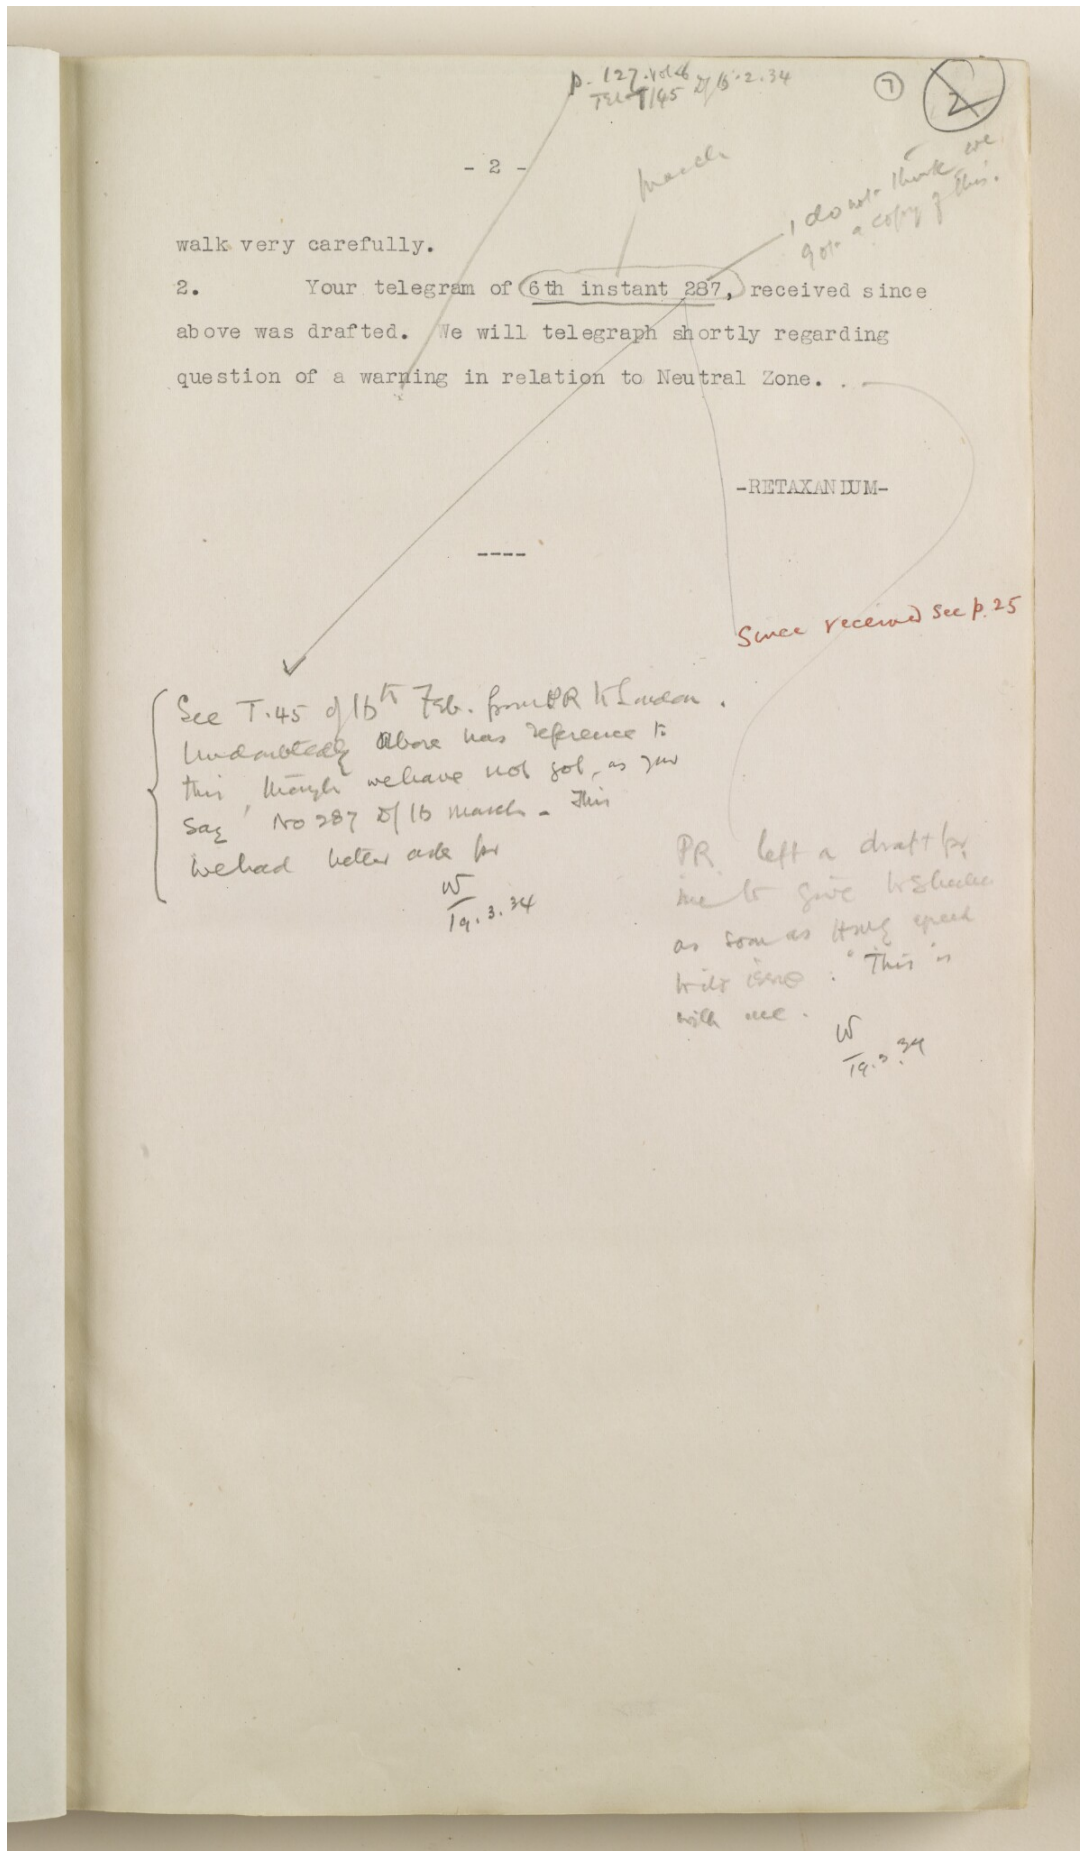 p. 127. vol 6
Tel T/45 D/16.2.34
7
2
- 2 -
March
I do not think we
got a copy of this.
walk very carefully.
2. Your telegram of 6th instant 287, received since
above was drafted. We will telegraph shortly regarding
question of a warning in relation to Neutral Zone.
-RETAXANDUM-
----
Since received see p. 25
See T.45 of 16th Feb. from PR to London.
Undoubtedly above has reference to
this, though we have not got, as you
say, No 287 D/16 March - This
we had better ask for
19.3.34
PR left a draft for
me to give to
as soon as
. "This is
with me.
19.3.34